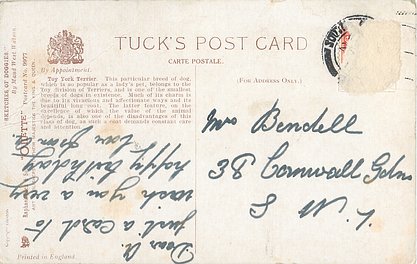 TUCK'S POST CARD
CARTE POSTALE.
(FOR ADDRESS ONLY.)
By Appointment.
Toy York Terrier. This particular breed of dog,
which is so popular as a lady's pet, belongs to the
toy division of Terriers, and is one of the smallest
breeds of dogs in existence. Much of its charm is
due to its vivacious and affectionate ways and its
beautiful long coat. The latter feature, on the
excellence of which the value of the animal
depends, is also one of the disadvantages of this
class of dog, as such a coat demands constant care
and attention.
SKETCHES OF DOGGIES
By Maud West Watson
"OILETTE"
Postcard No. 9977
Mrs Bendell
38 Cornwall Gdns
S W 7.
Dear A.
just a card to
wish you a very
happy birthday
love from
Printed in England.